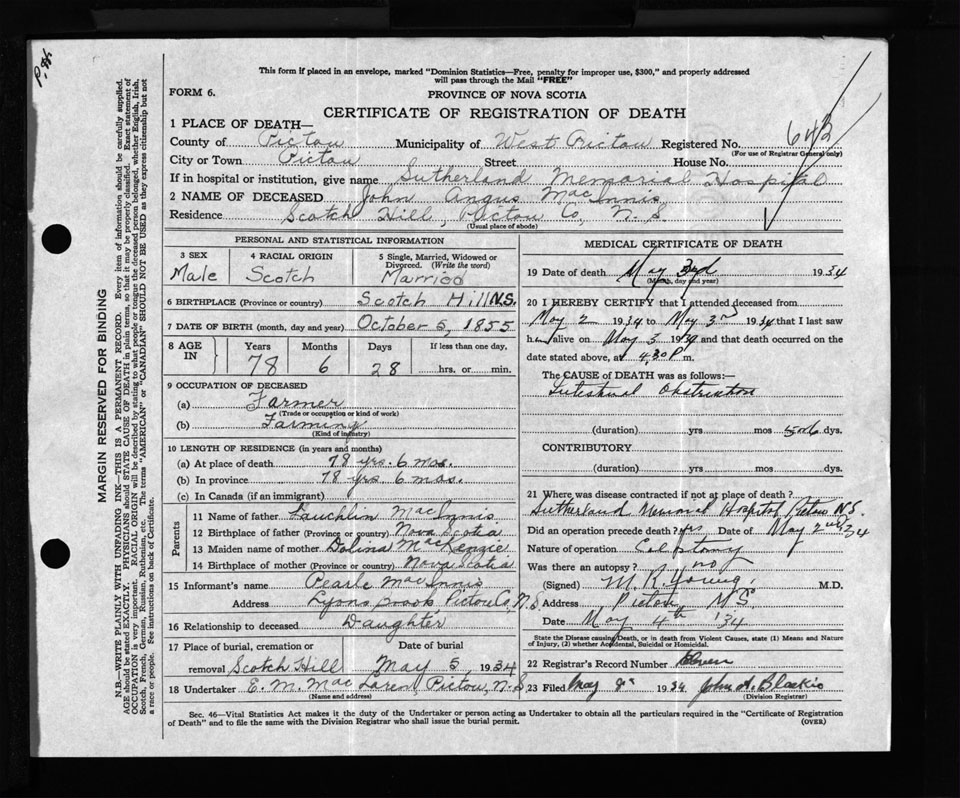 P.H.
This form if placed in an envelope, marked "Dominion Statistics—Free, penalty for improper use, $300," and properly addressed
will pass through the Mail "FREE"
FORM 6.
PROVINCE OF NOVA SCOTIA
CERTIFICATE OF REGISTRATION OF DEATH
1 PLACE OF DEATH—
County of Pictou Municipality of West Pictou Registered No.
(For use of Registrar General only)
City or Town Pictou Street House No.
If in hospital or institution, give name Sutherland Memorial Hospital
2 NAME OF DECEASED John Angus MacInnis
Residence Scotch Hill, Pictou Co, N. S.
(Usual place of abode)
PERSONAL AND STATISTICAL INFORMATION
3 SEX 4 RACIAL ORIGIN 5 Single, Married, Widowed or Divorced. (Write the word)
Male Scotch Married
6 BIRTHPLACE (Province or country) Scotch Hill N.S.
7 DATE OF BIRTH (month, day and year) October 5, 1855
8 AGE IN Years Months Days If less than one day,
78 6 28 hrs. or min.
9 OCCUPATION OF DECEASED
(a) Farmer
(Trade or occupation or kind of work)
(b) Farming
(Kind of industry)
10 LENGTH OF RESIDENCE (in years and months)
(a) At place of death 78 yrs. 6 mos.
(b) In province 78 yrs 6 mos.
(c) In Canada (if an immigrant)
Parents
11 Name of father Lauchlin MacInnis
12 Birthplace of father (Province or country) Nova Scotia
13 Maiden name of mother Dolina MacKenzie
14 Birthplace of mother (Province or country) Nova Scotia
15 Informant's name Pearle MacInnis
Address Lyons Brook Pictou Co, N S
16 Relationship to deceased Daughter
17 Place of burial, cremation or removal Scotch Hill Date of burial May 5, 1934
18 Undertaker E. M. MacLaren, Pictou, N. S
(Name and address)
MEDICAL CERTIFICATE OF DEATH
19 Date of death May 3rd 1934
(Month, day and year)
20 I HEREBY CERTIFY that I attended deceased from
May 2 1934 to May 3rd 1934 that I last saw
h alive on May 1934 and that death occurred on the
date stated above, at 4.30 P m.
The CAUSE of DEATH was as follows:—
Intestinal Obstruction
(duration) yrs mos 5 or 6 dys.
CONTRIBUTORY
(duration) yrs mos dys.
21 Where was disease contracted if not at place of death?
Sutherland Memorial Hospital Pictou N.S.
Did an operation precede death? yes Date of May 2nd 34
Nature of operation
Was there an autopsy? no
(Signed) M. R. Young, M.D.
Address Pictou N S
Date May 4th '34
State the Disease causing Death, or in death from Violent Causes, state (1) Means and Nature
of Injury, (2) whether Accidental, Suicidal or Homicidal.
22 Registrar's Record Number
23 Filed May 1934 John A. Blaikie
(Division Registrar)
Sec. 46—Vital Statistics Act makes it the duty of the Undertaker or person acting as Undertaker to obtain all the particulars required in the "Certificate of Registration
of Death" and to file the same with the Division Registrar who shall issue the burial permit.
(OVER)
MARGIN RESERVED FOR BINDING
N.B.—WRITE PLAINLY WITH UNFADING INK—THIS IS A PERMANENT RECORD. Every item of information should be carefully supplied.
AGE should be stated EXACTLY. PHYSICIANS should STATE CAUSE OF DEATH in plain terms, so that it may be properly classified. Exact statement of
OCCUPATION is very important. RACIAL ORIGIN will be described by stating to what people or tongue the deceased person belonged, whether English, Irish,
Scotch, French, German, Russian, Ruthenian, etc. The terms "AMERICAN" or "CANADIAN" SHOULD NOT BE USED as they express citizenship but not
a race or people. See instructions on back of Certificate.